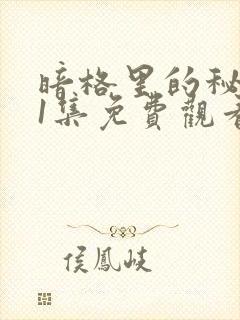 暗格里的秘
1集免費觀看
侯鳳岐